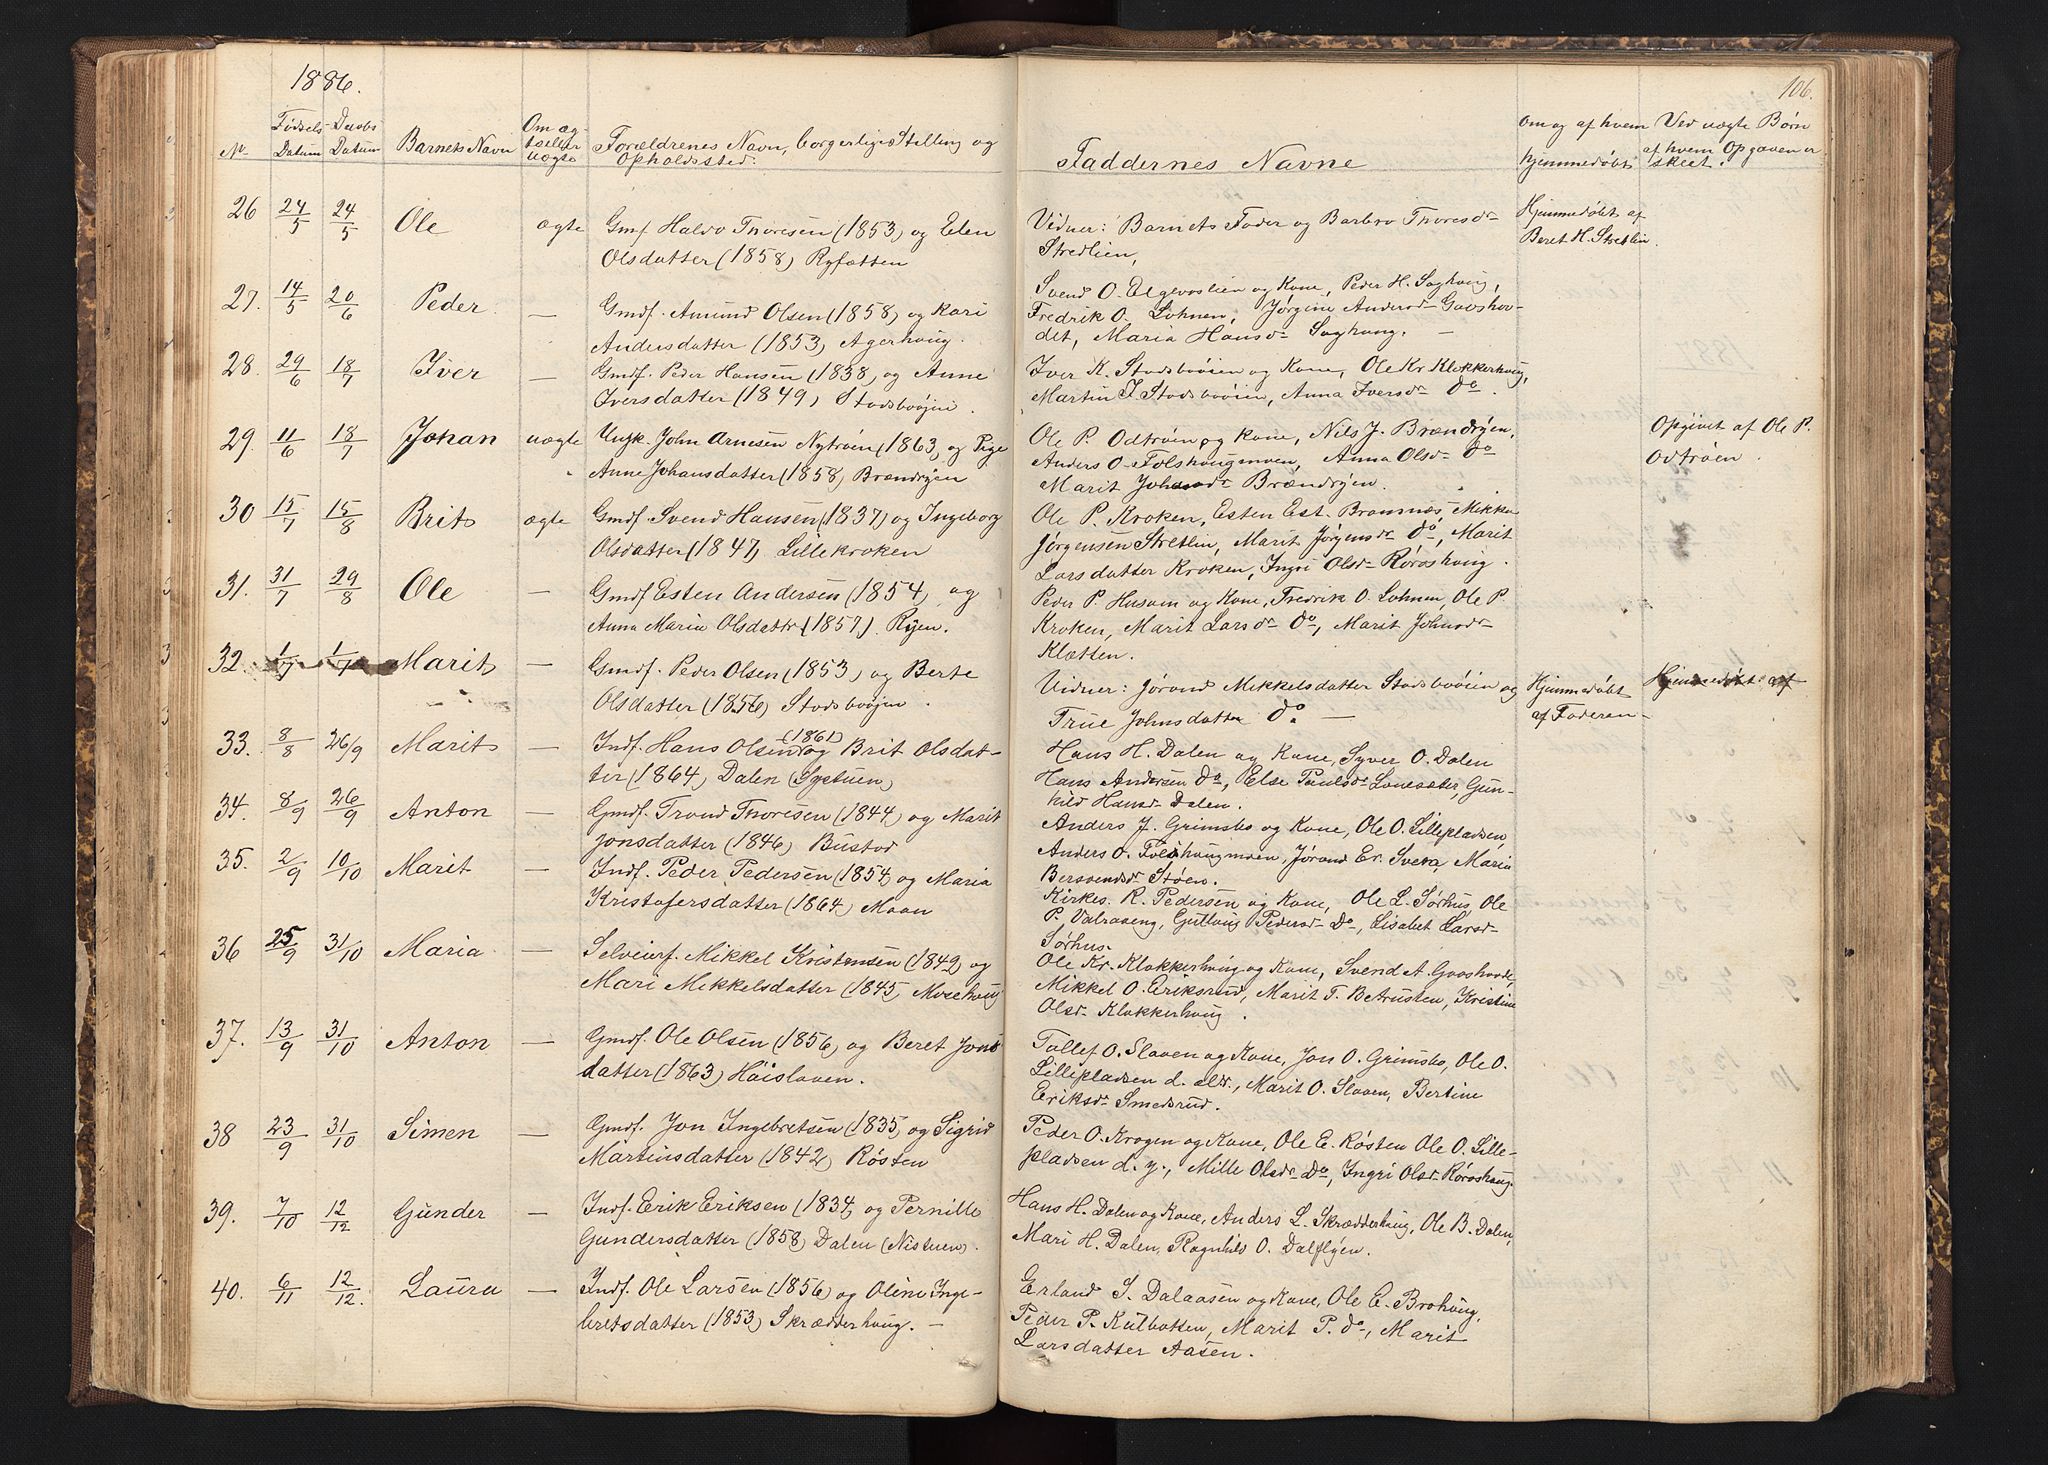 1886.
106.
No
Fødsels Datum
Daabs Datum
Barnets Navn
Om ægte eller uægte
Forældrenes Navn, borgerlige Stilling og Opholdssted.
Faddernes Navne
om og af hvem hjemmedøbt
Ved uægte Børn af hvem Opgaven er skeet.
26 24/5 24/5 Ole ægte Gmf. Haldo Thoresen (1853) og Elen
Olsdatter (1858) Ryfætten
Vidner: Barnets Fader og Barbro Thoresdr
Stredlien,
Hjemmedøbt af
Beret H. Stretlin.
27. 14/5 20/6 Peder — Gmdf. Amund Olsen (1858) og Kari
Andersdatter (1853) Agerhoug.
Svend O. Elgevaslien og Kone, Peder H. Saghoug,
Fredrik O. Lohnen, Jørgine Andersd Gaashov-
det, Maria Hansdr Saghoug. —
28. 29/6 18/7 Iver — Gmdf. Peder Hansen (1838) og Anne
Iversdatter (1849) Stodsbvøjen.
Iver K. Stodsbvøien og Kone, Ole Kr Klokkerhoug,
Martin I Stodsbvøien, Anna Iversdr Do.
29. 11/6 18/7 Johan uægte Ungk. John Arnesen Nytrøen (1863) og Pige
Anne Johansdatter (1858) Brændryen
Ole P. Odtrøen og Kone, Nils J. Brændryen,
Anders O. Folshougmoen, Anna Olsdr Do
Marit Johansdr Brændryen.
Opgivet af Ole P.
Odtrøen.
30 15/7 15/8 Brit ægte Gmdf. Svend Hansen (1837) og Ingeborg
Olsdatter (1847) Lillekroken
Ole P. Kroken, Esten Est. Bramnæs Mikkel
Jørgensen Stretlin, Marit Jørgensdr Do, Marit
Larsdatter Kroken, Ingri Olsdr Røroshoug.
31. 31/7 29/8 Ole — Gmdf Esten Andersen (1854) og
Anna Maria Olsdattr (1857). Ryen.
Peder P. Husom og Kone, Fredrik O. Lohnen, Ole P.
Kroken, Marit Larsdr Do, Marit Johnsdr
Klætten.
32. 1/7 1/7 Marit — Gmdf. Peder Olsen (1853) og Berte
Olsdatter (1856) Stodsbvøjen.
Vidner: Jørand Mikkelsdatter Stodsbvøien og
True Johnsdatter Do. —
Hjemmedøbt
af Faderen —
Hjemmedøbt af
33. 8/8 26/9 Marit — Indf. Hans Olsen (1861) og Brit Olsdat-
ter (1864) Dalen (Systuen)
Hans H. Dalen og Kone, Syver O. Dalen
Hans Andersen Do, Else Paulsdr Lonesæter, Gun-
hild Hansdr Dalen.
34. 8/9 26/9 Anton — Gmdf. Trond Thoresen (1844) og Marit
Jonsdatter (1846) Bustad
Anders J. Grimsbo og Kone, Ole O. Lillepladsen,
Anders O. Folshougmoen, Jørand Er. Svera, Maria
Bersvendsdr Støen.
35. 2/9 10/10 Marit — Indf. Peder Pedersen (1854) og Maria
Kristofersdatter (1864) Moan
Kirkes. R. Pedersen og Kone, Ole L. Sørhus, Ole
P. Valraaeng, Gutlaug Pedersd Do, Lisabet Larsdr
Sørhus.
36 25/9 31/10 Maria — Selveierf. Mikkel Kristensen (1842) og
Mari Mikkelsdatter (1845) Mosehoug
Ole Kr. Klokkerhoug og Kone, Svend A. Gaashovde,
Mikkel O. Eriksrud, Marit T. Betrusten, Kristine
Olsdr Klokkerhoug.
37. 13/9 31/10 Anton — Gmdf. Ole Olsen (1856) og Beret Jons
datter (1863) Høislaven.
Tollef O. Slaven og Kone, Jon O. Grimsbo, Ole O.
Lillepladsen d. eldr., Marit O. Slaven, Bertine
Eriksdr Smedsrud.
38 23/9 31/10 Simen — Gmdf. Jon Ingebretsen (1835) og Sigrid
Martinsdatter (1842) Røsten
Peder O. Krogen og Kone, Ole E. Røsten Ole O. Lille-
pladsen d. y., Mille Olsdr Do, Ingri Olsdr Røroshoug.
39. 7/10 12/12 Gunder — Indf. Erik Eriksen (1834) og Pernille
Gundersdatter (1858) Dalen (Nistuen).
Hans H. Dalen og Kone, Anders L. Skrædderhoug, Ole B. Dalen,
Mari H. Dalen, Ragnhild O. Dalflyen.
40. 6/11 12/12. Laura — Indf. Ole Larsen (1856) og Oline Inge-
bretsdatter (1853) Skrædderhoug. —
Erland S. Dalaasen og Kone, Ole E. Brohoug,
Peder P. Kulbotten, Marit P. do, Marit
Larsdatter Aasen.